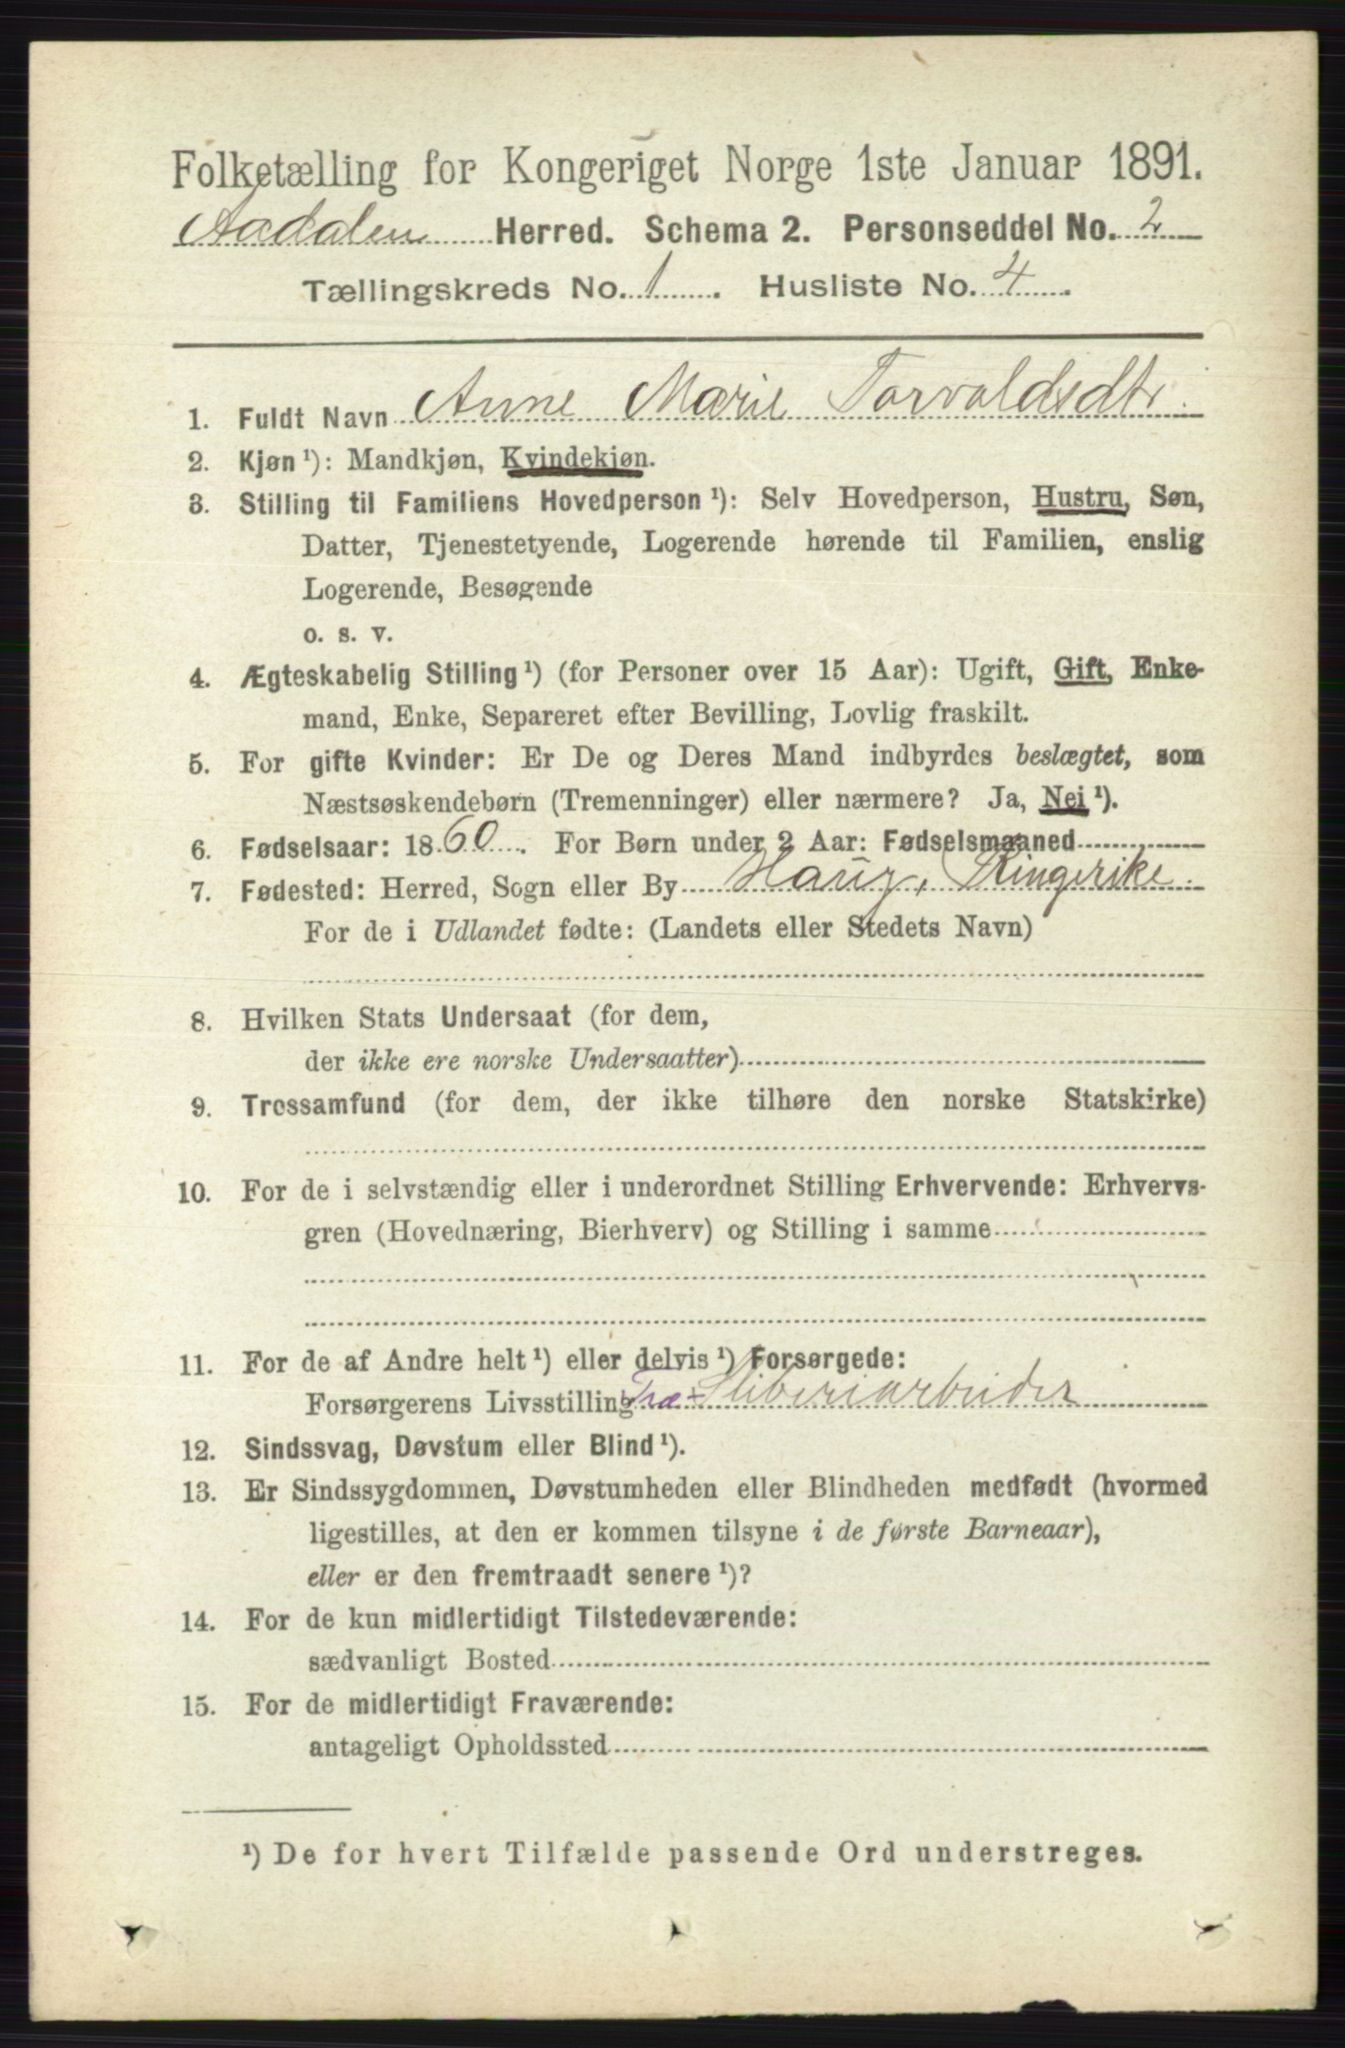 Folketælling for Kongeriget Norge 1ste Januar 1891.
Aadalen Herred. Schema 2. Personseddel No. 2
Tællingskreds No. 1. Husliste No. 4.
1. Fuldt Navn Anne Marie Torvaldsdtr.
2. Kjøn ¹): Mandkjøn, Kvindekjøn.
3. Stilling til Familiens Hovedperson ¹): Selv Hovedperson, Hustru, Søn,
Datter, Tjenestetyende, Logerende hørende til Familien, enslig
Logerende, Besøgende
o. s. v.
4. Ægteskabelig Stilling ¹) (for Personer over 15 Aar): Ugift, Gift, Enke-
mand, Enke, Separeret efter Bevilling, Lovlig fraskilt.
5. For gifte Kvinder: Er De og Deres Mand indbyrdes beslægtet, som
Næstsøskendebørn (Tremenninger) eller nærmere? Ja, Nei ¹).
6. Fødselsaar: 1860. For Børn under 2 Aar: Fødselsmaaned
7. Fødested: Herred, Sogn eller By Haug, Ringerike.
For de i Udlandet fødte: (Landets eller Stedets Navn)
8. Hvilken Stats Undersaat (for dem,
der ikke ere norske Undersaatter)
9. Trossamfund (for dem, der ikke tilhøre den norske Statskirke)
10. For de i selvstændig eller i underordnet Stilling Erhvervende: Erhvervs-
gren (Hovednæring, Bierhverv) og Stilling i samme
11. For de af Andre helt ¹) eller delvis ¹) Forsørgede:
Forsørgerens Livsstilling Træ-Sliberiarbeider
12. Sindssvag, Døvstum eller Blind ¹).
13. Er Sindssygdommen, Døvstumheden eller Blindheden medfødt (hvormed
ligestilles, at den er kommen tilsyne i de første Barneaar),
eller er den fremtraadt senere ¹)?
14. For de kun midlertidigt Tilstedeværende:
sædvanligt Bosted
15. For de midlertidigt Fraværende:
antageligt Opholdssted
¹) De for hvert Tilfælde passende Ord understreges.